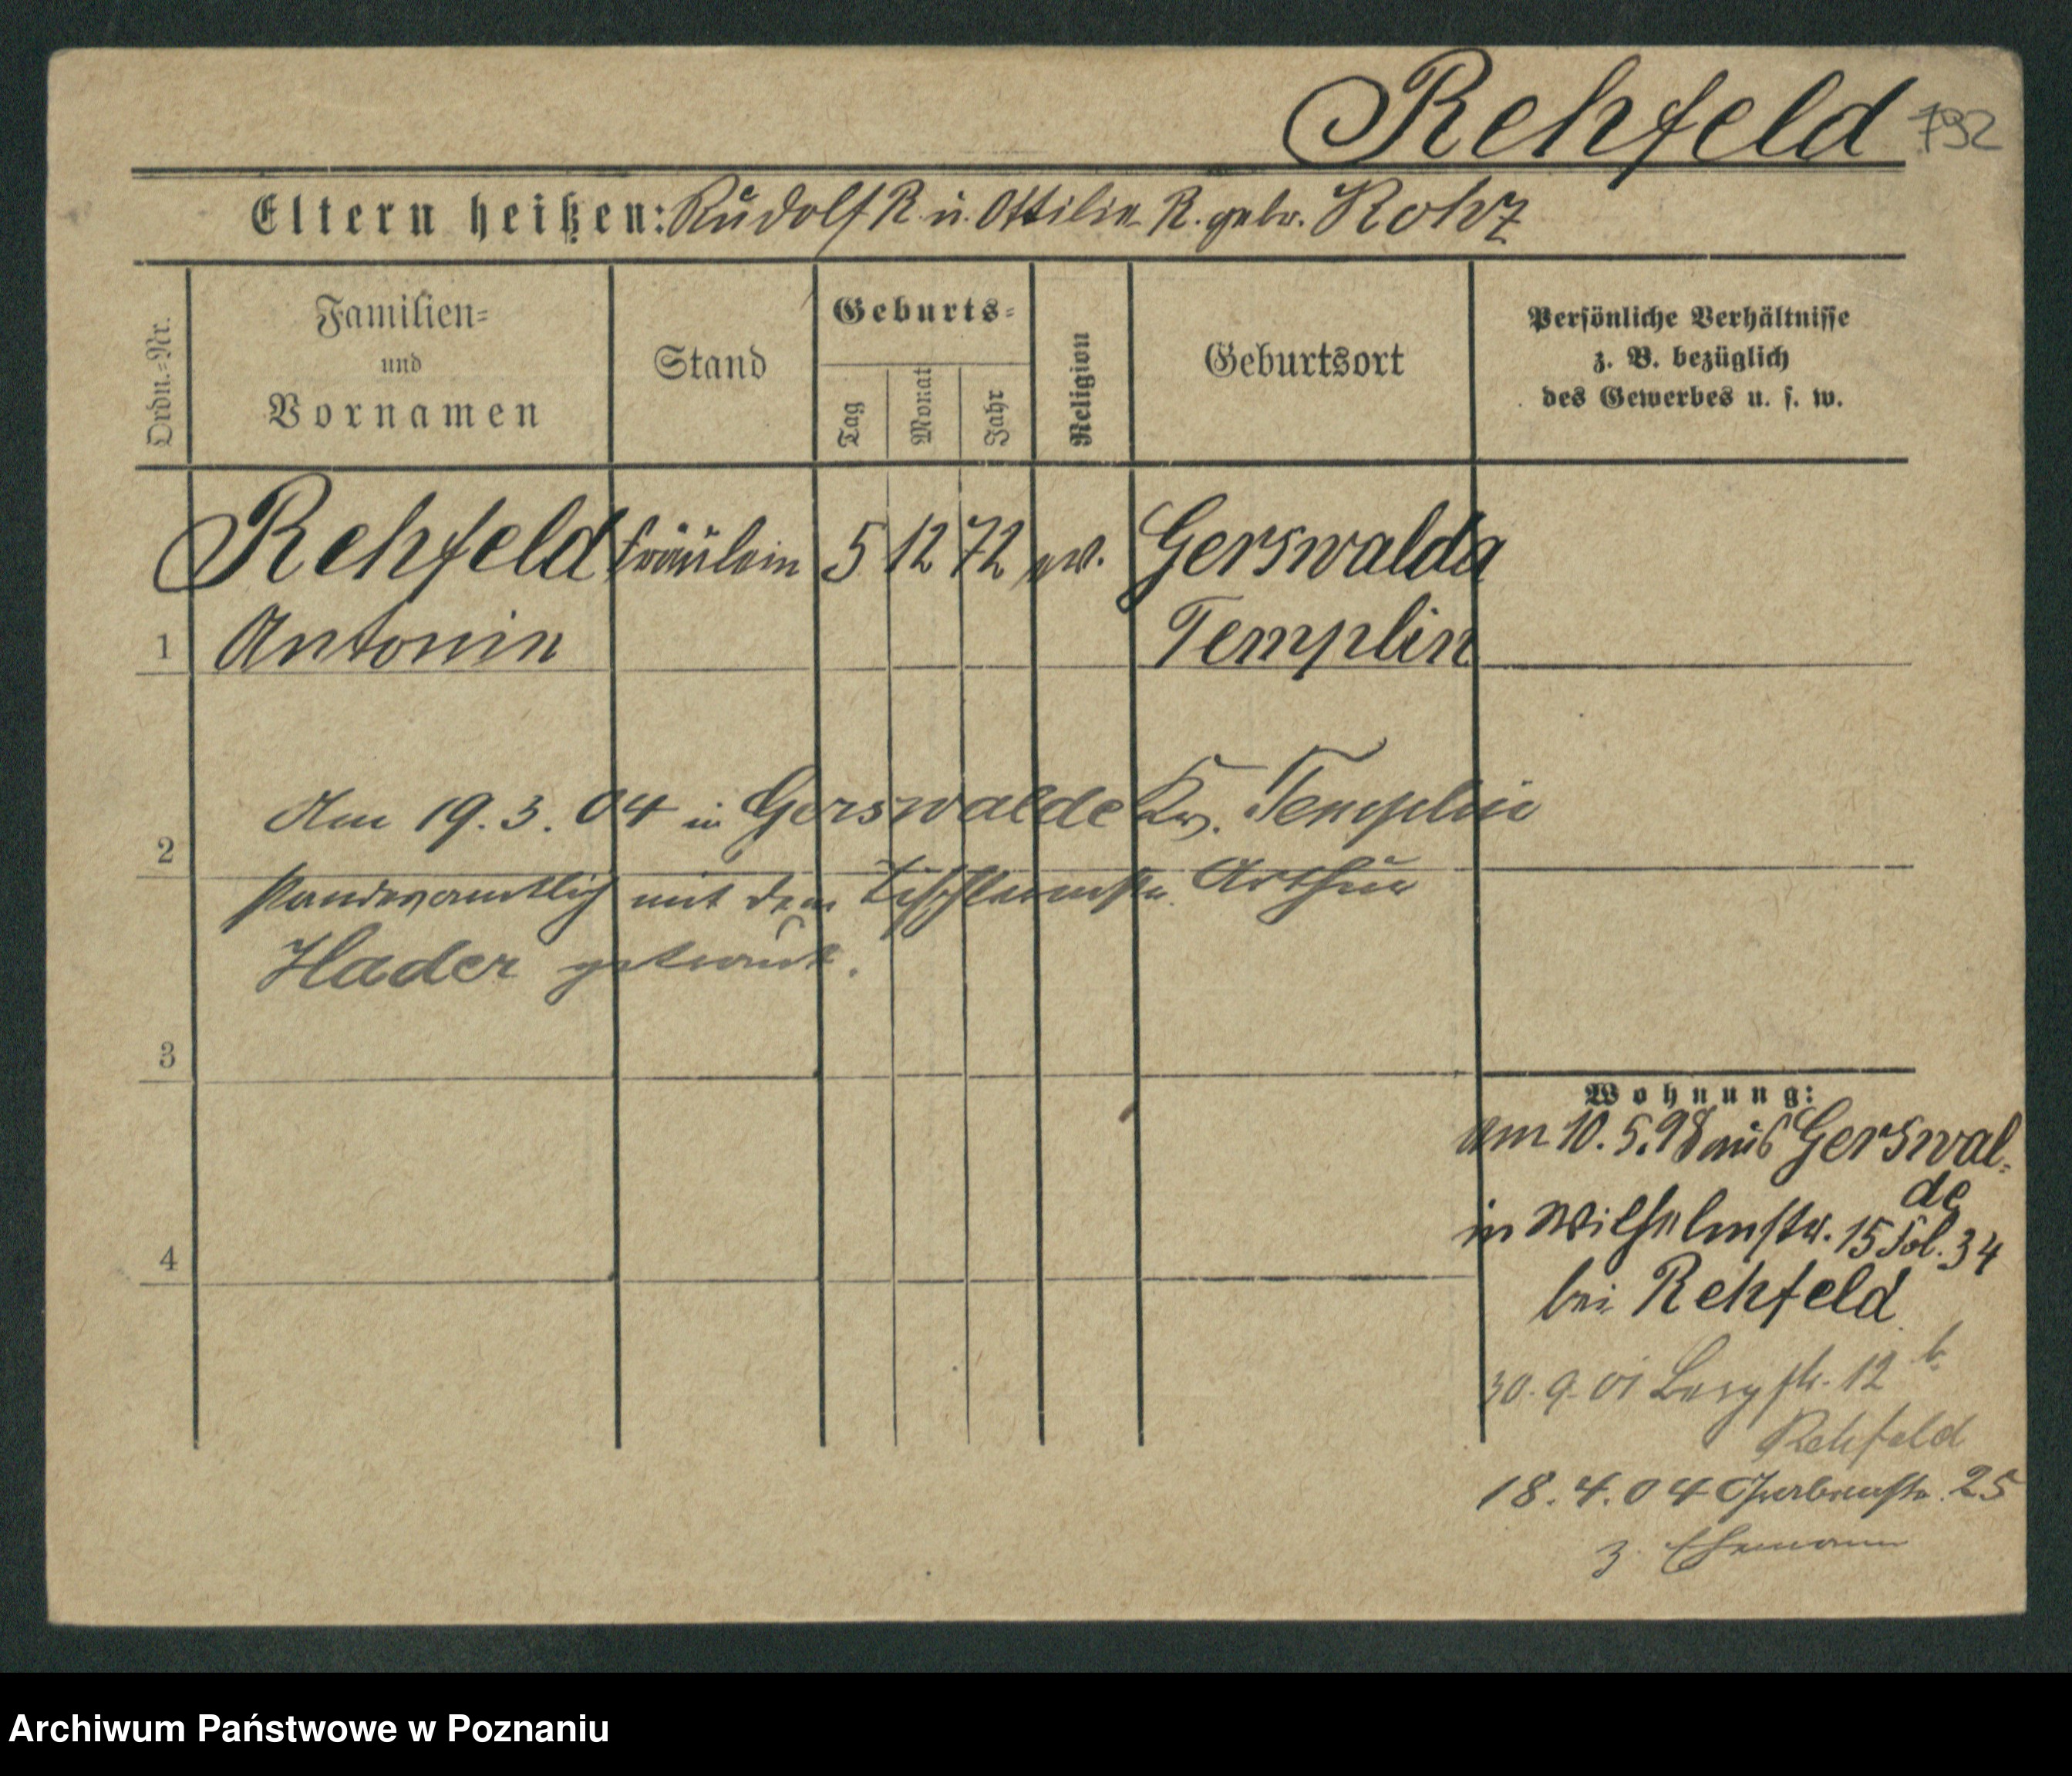 Rehfeld 792
Eltern heißen: Rudolf R. u. Ottilie R. gebr. Rohz
Ordn.=Nr.
Familien=
und
Vornamen
Stand
Geburts=
Tag
Monat
Jahr
Religion
Geburtsort
Persönliche Verhältnisse
z. B. bezüglich
des Gewerbes u. s. w.
Rehfeld Fräulein 5 12 72 ev. Gerswalda
1 Antonie Templin
Am 19. 3. 04 in Gerswalde Kr. Templin
2
standesamtlich mit dem Tischlermstr. Arthur
Hader getraut.
3
4
Wohnung:
am 10. 5. 98 aus Gerswal=
de
in Wilhelmstr. 15 Fol. 34
bei Rehfeld
30. 9. 01 Bergstr. 12 b
Rehfeld
18. 4. 04 25
z. Ehemann
Archiwum Państwowe w Poznaniu